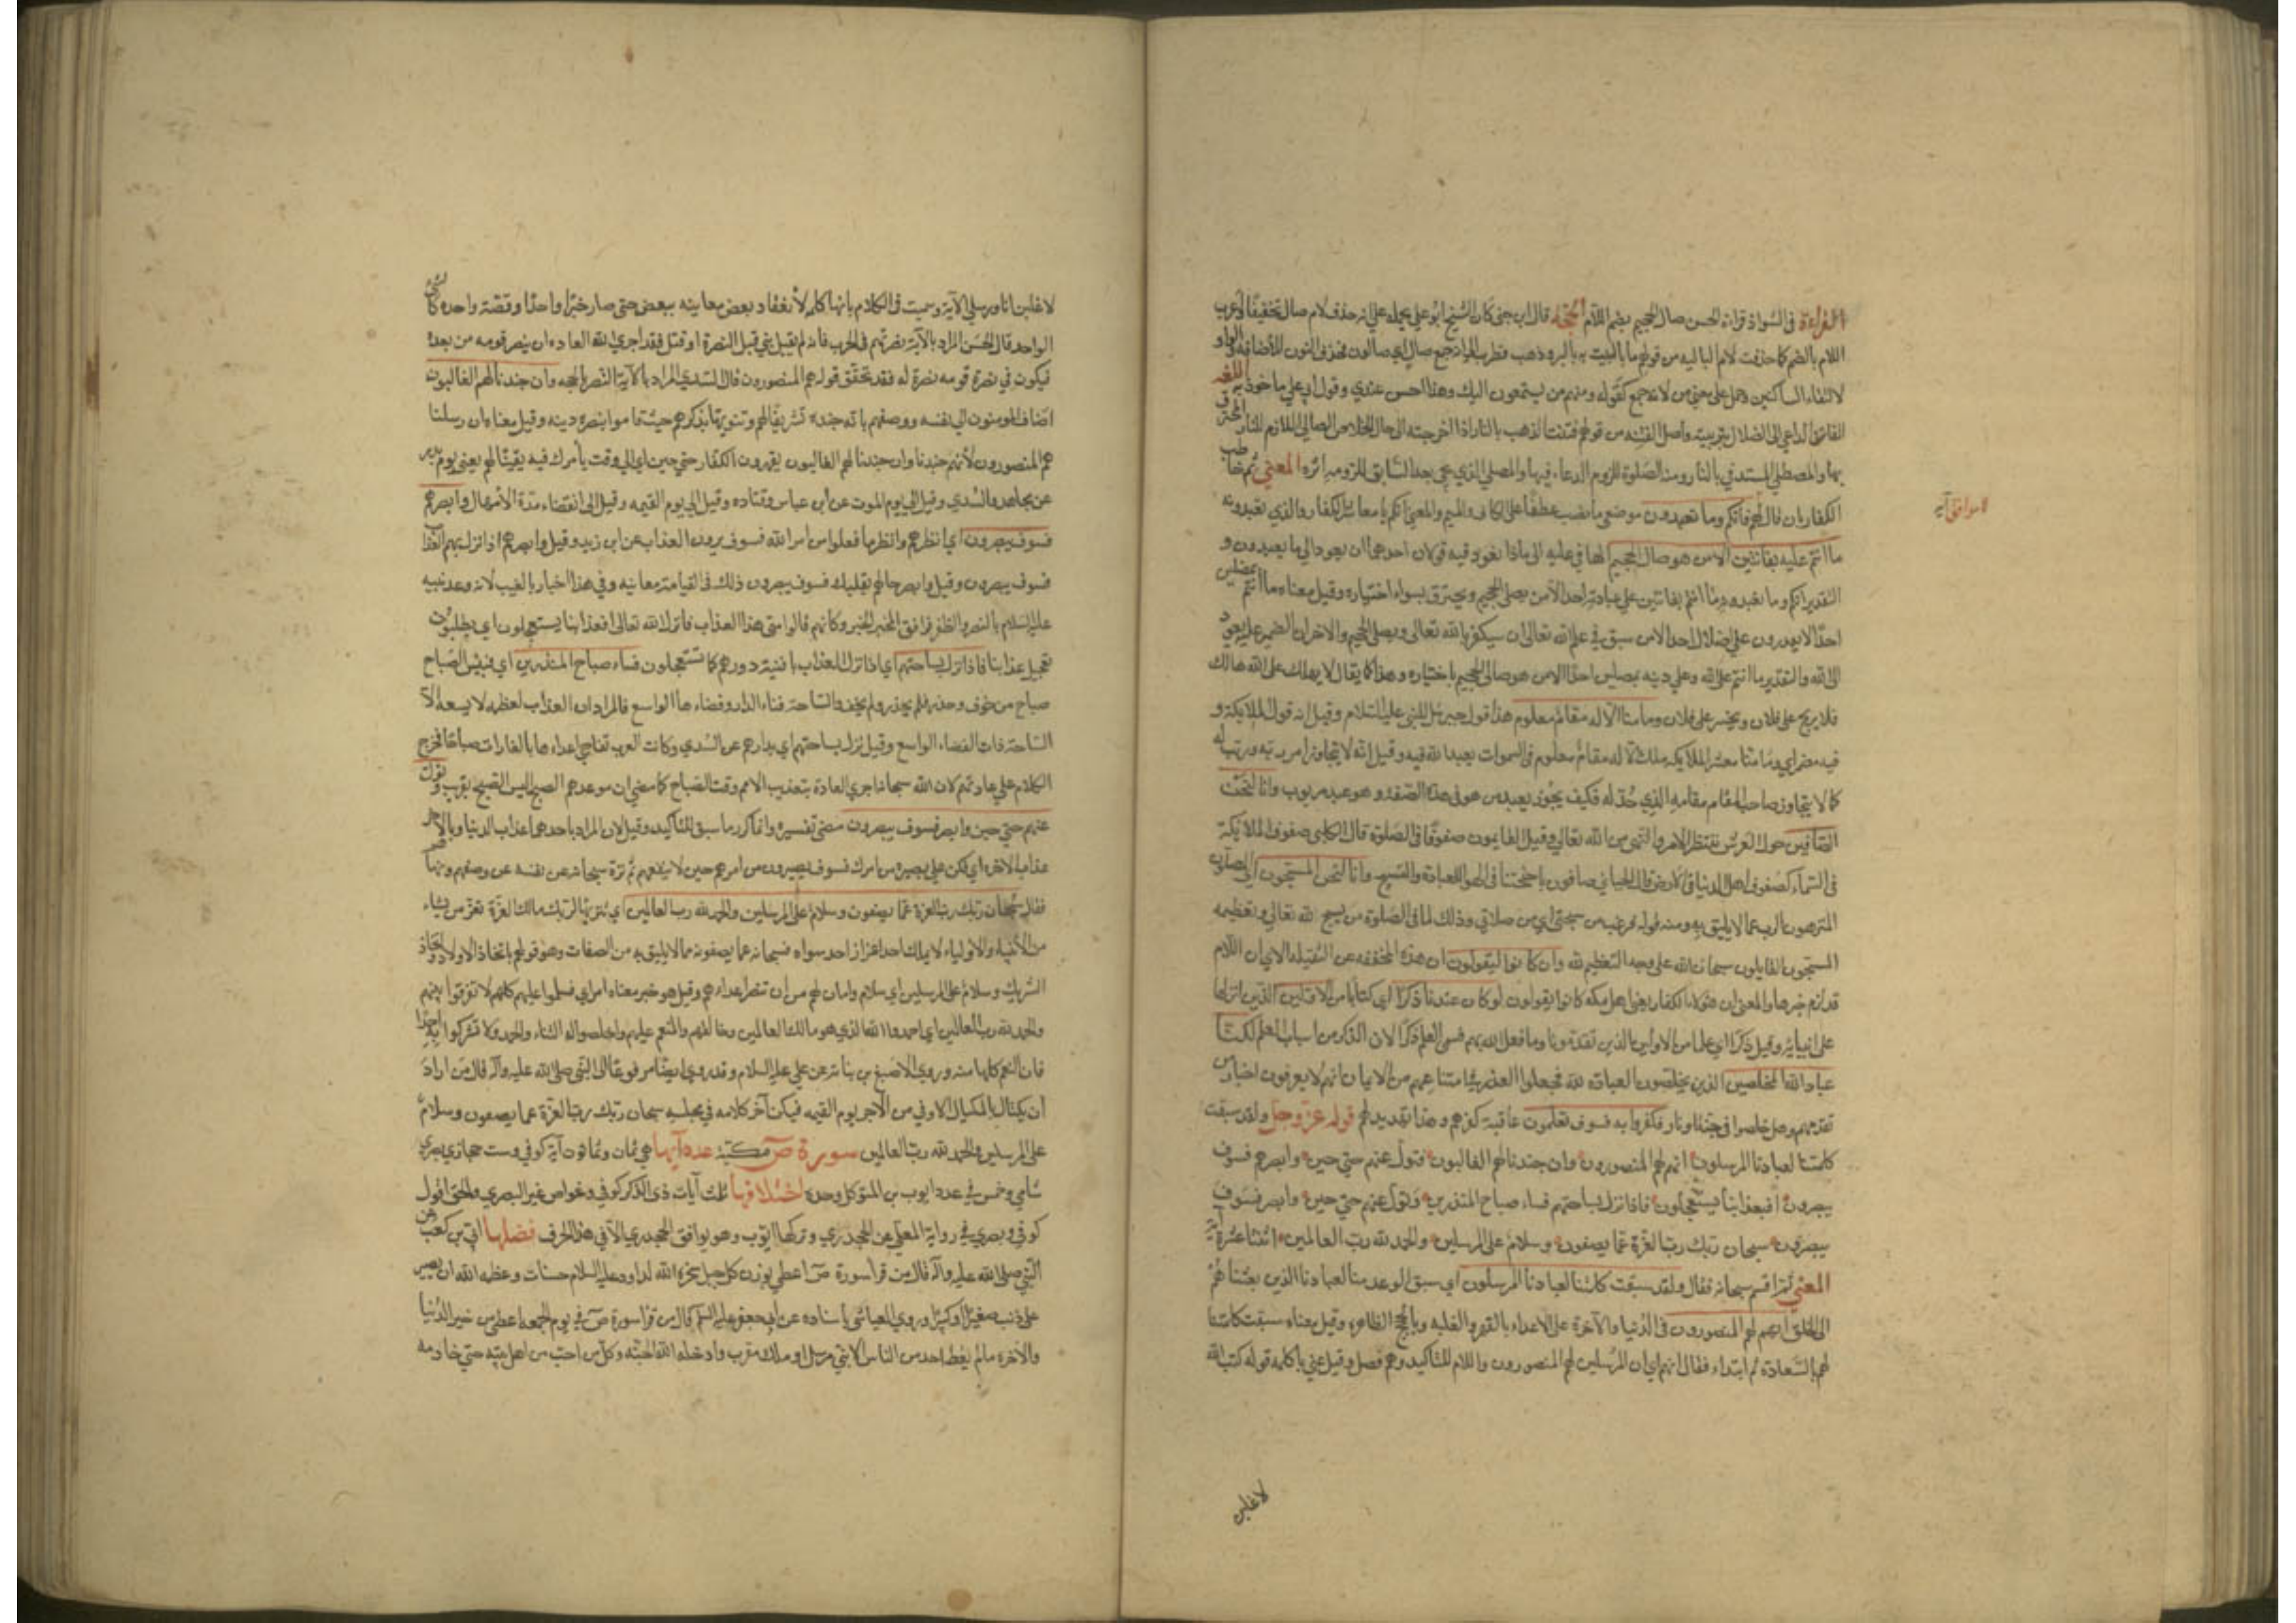 القراءة في الشواذ قراءة الحسن صال الجحيم بضم اللام الحجة قال ابن جني كان الشيخ ابو علي يحمله على انه حذف لام صال تخفيفا واعرب
اللام بالضم كما حذفت لام البالية من قولهم ما باليت به بالة وذهب قطرب الى انه جمع صال اي صالون فحذف النون للاضافة والواو
لالتقاء الساكنين وحمل على معنى من لانه جمع كقوله ومنهم من يستمعون اليك وهذا حسن عندي وقول ابي علي ماخوذ به اللغة
الفاتن الداعي الى الضلال بتزيينه واصل الفتنة من قولهم فتنت الذهب بالنار اذا اخرجته الى حال الخلاص الصالي اللازم للنار المحترق
بها والمصطلي المستدفي بالنار ومنه الصلوة للزوم الدعاء فيها والمصلي الذي يجيء بعد السابق للزومه اثره المعنى ثم خاطب
الكفار بان قال لهم فانكم وما تعبدون موضع ما نصب عطفا على الكاف والميم والمعنى انكم يا معاشر الكفار والذي تعبدونه
ما انتم عليه بفاتنين الا من هو صال الجحيم الهاء في عليه الى ماذا تعود فيه قولان احدهما ان يعود الى ما يعبدون و
التقدير انكم وما تعبدونه ما انتم بفاتنين على عبادته احدا الا من يصلى الجحيم ويحترق بسوء اختياره وقيل معناه ما انتم بمضلين
احدا لا يقدرون على اضلال احد الا من سبق في علم الله تعالى ان سيكفر بالله تعالى ويصلى الجحيم والاخر ان الضمير عليه يعود
الى الله والتقدير ما انتم على الله وعلى دينه بمضلين احدا الا من هو صالي الجحيم باختياره وهذا كما يقال لا يهلك على الله هالك
فلا يربح على فلان ويخسر على فلان وما منا الا له مقام معلوم هذا قول جبرئيل للنبي عليه السلام وقيل انه قول الملايكة و
فيه مضمر اي وما منا معشر الملايكة ملك الا له مقام معلوم في السموات يعبد الله فيه وقيل انه لا يتجاوز ما امر به ورتب له
كما لا يتجاوز صاحب المقام مقامه الذي حد له فكيف يجوز ان يعبد من هو في هذه الصفة وهو عبد مربوب وانا لنحن
الصافون حول العرش ننتظر الامر والنهي من الله تعالى وقيل القايمون صفوفا في الصلوة قال الكلبي صفوف الملايكة
في السماء كصفوف اهل الدنيا في الارض قال الجبائي صافون باجنحتنا في الهواء للعبادة والتسبيح وانا لنحن المسبحون اي المصلون
المنزهون الرب عما لا يليق به ومنه قوله فرغت من سبحتي اي من صلاتي وذلك لما في الصلوة من تسبيح الله تعالى وتعظيمه
المسبحون القايلون سبحان الله على وجه التعظيم لله وان كانوا ليقولون ان هذه المخففة عن الثقيلة الا ترى ان اللام
قد لزم خبرها والمعنى ان هؤلاء الكفار يعني اهل مكة كانوا يقولون لو ان عندنا ذكرا اي كتابا من الاولين الذين انزلها
على انبيائه وقيل ذكرا اي علما من الاولين الذين تقدمونا وما فعل الله بهم فسمى العلم ذكرا لان الذكر من اسباب العلم لكنا
عباد الله المخلصين الذين يخلصون العبادة لله فجعلوا العذر في امتناعهم من الايمان انهم لا يعرفون اخبار من
تقدمهم وهل حصلوا في جنة او نار فكفروا به فسوف تعلمون عاقبة كفرهم وهذا تهديد لهم قوله عز وجل ولقد سبقت
كلمتنا لعبادنا المرسلين انهم لهم المنصورون وان جندنا لهم الغالبون فتول عنهم حتى حين وابصرهم فسوف
يبصرون افبعذابنا يستعجلون فاذا نزل بساحتهم فساء صباح المنذرين وتول عنهم حتى حين وابصر فسوف
يبصرون سبحان ربك رب العزة عما يصفون وسلام على المرسلين والحمد لله رب العالمين اثنتا عشرة آية
المعنى ثم اقسم سبحانه فقال ولقد سبقت كلمتنا لعبادنا المرسلون اي سبق الوعد منا لعبادنا الذين بعثناهم
الى الخلق انهم لهم المنصورون في الدنيا والآخرة على الاعداء بالقهر والغلبة وبالحجج الظاهرة وقيل معناه سبقت كلمتنا
لهم بالسعادة ثم ابتداء فقال انهم اي ان المرسلين لهم المنصورون واللام للتاكيد وهم فصل وقيل عنى بالكلمة قوله كتب الله
لاغلبن
لاغلبن انا ورسلي الآية وسميت في الكلام بانها كلمة لانعقاد بعض معانيه ببعض حتى صار خبرا واحدا وقصة واحدة كالشيء
الواحد قال الحسن المراد بالآية نصرتهم في الحرب فانه لم يقتل نبي قبل النصرة او قتل فقد اجرى الله العادة ان ينصر قومه من بعده
فيكون في نصرة قومه نصرة له فقد تحقق قوله هم المنصورون قال السدي المراد بالآية النصر بالحجة وان جندنا لهم الغالبون
اضاف المومنون الى نفسه ووصفهم بانه جنده تشريفا لهم وتنويها بذكرهم حيث قاموا بنصرة دينه وقيل معناه ان رسلنا
هم المنصورون لانهم جندنا وان جندنا لهم الغالبون يقهرون الكفار حتى حين اي الى وقت يأمرك فيه بقتالهم يعني يوم بدر
عن مجاهد والسدي وقيل الى يوم الموت عن ابن عباس وقتادة وقيل الى يوم القيمة وقيل الى انقضاء مدة الامهال وابصرهم
فسوف يبصرون اي انظرهم وانظر ما فعلوا من امر الله فسوف يرون العذاب عن ابن زيد وقيل وابصرهم اذا نزل بهم العذاب
فسوف يبصرون وقيل وابصر حالهم بقلبك فسوف يبصرون ذلك في القيامة معاينة وفي هذا اخبار بالغيب لانه وعد نبيه
عليه السلام بالنصر والظفر فوافق المخبر الخبر وكانهم قالوا متى هذا العذاب فانزل الله تعالى افبعذابنا يستعجلون اي يطلبون
تعجيل عذابنا فاذا نزل بساحتهم اي اذا نزل العذاب بافنية دورهم كما تستعجلون فساء صباح المنذرين اي فبئس الصباح
صباح من خوف وحذر فلم يحذر ولم يخف والساحة فناء الدار وفضاءها الواسع فالمراد ان العذاب لعظمه لا يسعه الا
الساحة ذات الفضاء الواسع وقيل نزل بساحتهم اي بدارهم عن السدي وكانت العرب تفاجئ اعداءها بالغارات صباحا فخرج
الكلام على عادتهم لان الله سبحانه اجرى العادة بتعذيب الامم وقت الصباح كما مضى ان موعدهم الصبح اليس الصبح بقريب وتول
عنهم حتى حين وابصر فسوف يبصرون مضى تفسيره وانما كرر ما سبق للتاكيد وقيل لان المراد باحدهما عذاب الدنيا وبالاخر
عذاب الاخرة اي فكن على بصيرة من امرك فسوف يبصرون من امرهم حين لا ينفعهم ثم نزه سبحانه عن نفسه عن وصفهم
فقال سبحان ربك رب العزة عما يصفون وسلام على المرسلين والحمد لله رب العالمين اي تنزيها لربك مالك العزة تعز من يشاء
من الانبياء والاولياء لا يملك احد اعزاز احد سواه فسبحانه عما يصفونه مما لا يليق به من الصفات وهو قولهم باتخاذ الاولاد واتخاذ
الشريك وسلام على المرسلين اي سلام وامان لهم من ان تنصر اعداءهم وقيل هو خبر معناه امر اي فسلموا عليهم كلهم لا تفرقوا بينهم
والحمد لله رب العالمين اي احمدوا الله الذي هو مالك العالمين وخالقهم والمنعم عليهم واخلصوا له الثناء والحمد ولا تشركوا به احدا
فان النعم كلها منه وروى الاصبغ بن نباتة عن علي عليه السلام وقد روي ايضا مرفوعا الى النبي صلى الله عليه وآله قال من اراد
ان يكتال بالمكيال الاوفى من الاجر يوم القيمة فيكن آخر كلامه في مجلسه سبحان ربك رب العزة عما يصفون وسلام
على المرسلين والحمد لله رب العالمين سورة ص مكية عدد آيها هي ثمان وثمانون آية كوفي وست حجازي بصري
شامي وخمس في عدد ايوب بن المتوكل وحده اختلافها ثلث آيات ذي الذكر كوفي وغواص غير البصري والحق اقول
كوفي وبصري في رواية المعلى عن الجحدري وتركها ايوب وهو يوافق الجحدري الا في هذا الحرف فضلها ابي بن كعب عن
النبي صلى الله عليه وآله قال من قرأ سورة ص اعطي بوزن كل جبل سخره الله لداود عليه السلام حسنات وعظمه الله ان يصير
على ذنب صغيرا او كبيرا وروى العياشي باسناده عن ابي جعفر عليه السلم قال من قرأ سورة ص في يوم الجمعة اعطي من خير الدنيا
والآخرة ما لم يعط احد من الناس الا نبي مرسل او ملك مقرب وادخله الله الجنة وكل من احب من اهل بيته حتى خادمه